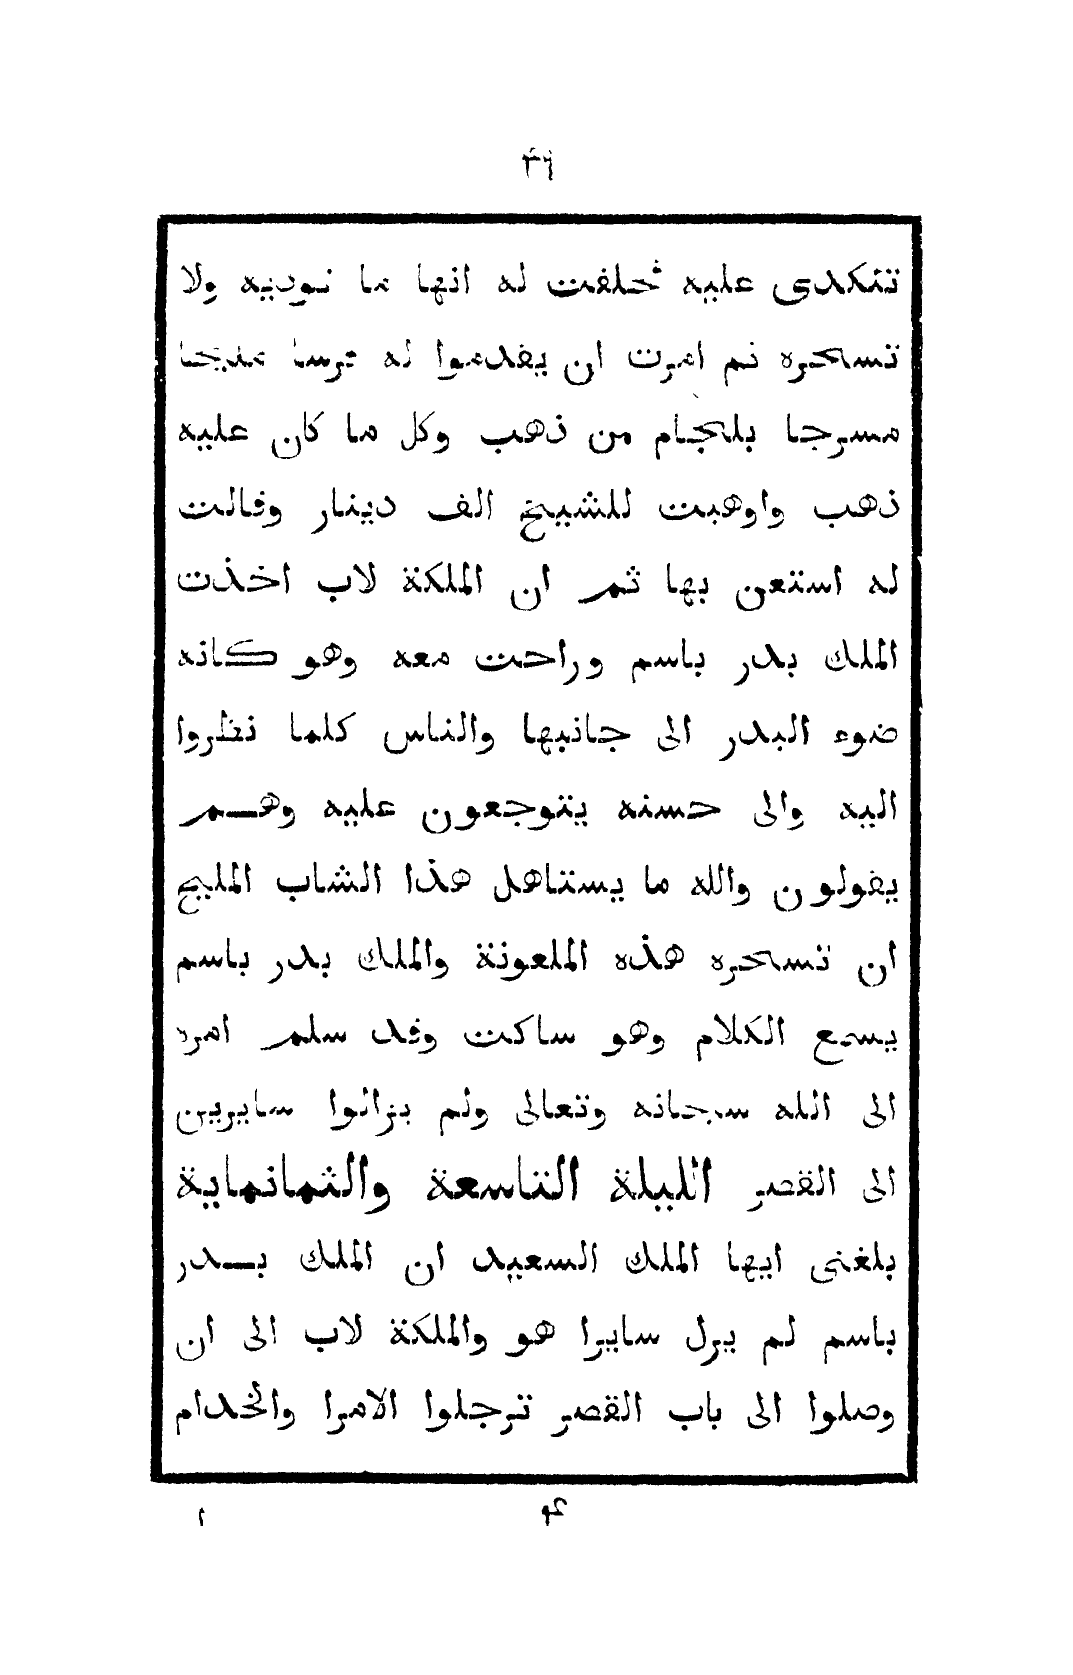 ٣٩
تتكدى عليه فحلفت له انها ما نوذيه ولا
تسحره ثم امرت ان يقدموا له فرسا مليحا
مسرجا بلجام من ذهب وكل ما كان عليه
ذهب واوهبت للشيخ الف دينار وقالت
له استعن بها ثم ان الملكة لاب اخذت
الملك بدر باسم وراحت معه وهو كانه
ضوء البدر الى جانبها والناس كلما نظروا
اليه والى حسنه يتوجعون عليه وهــم
يقولون والله ما يستاهل هذا الشاب المليح
ان تسحره هذه الملعونة والملك بدر باسم
يسمع الكلام وهو ساكت وقد سلم امره
الى الله سبحانه وتعالى ولم يزالوا سايرين
الى القصر الليلة التاسعة والثمانماية
بلغنى ايها الملك السعيد ان الملك بــدر
باسم لم يزل سايرا هو والملكة لاب الى ان
وصلوا الى باب القصر ترجلوا الامرا والخدام